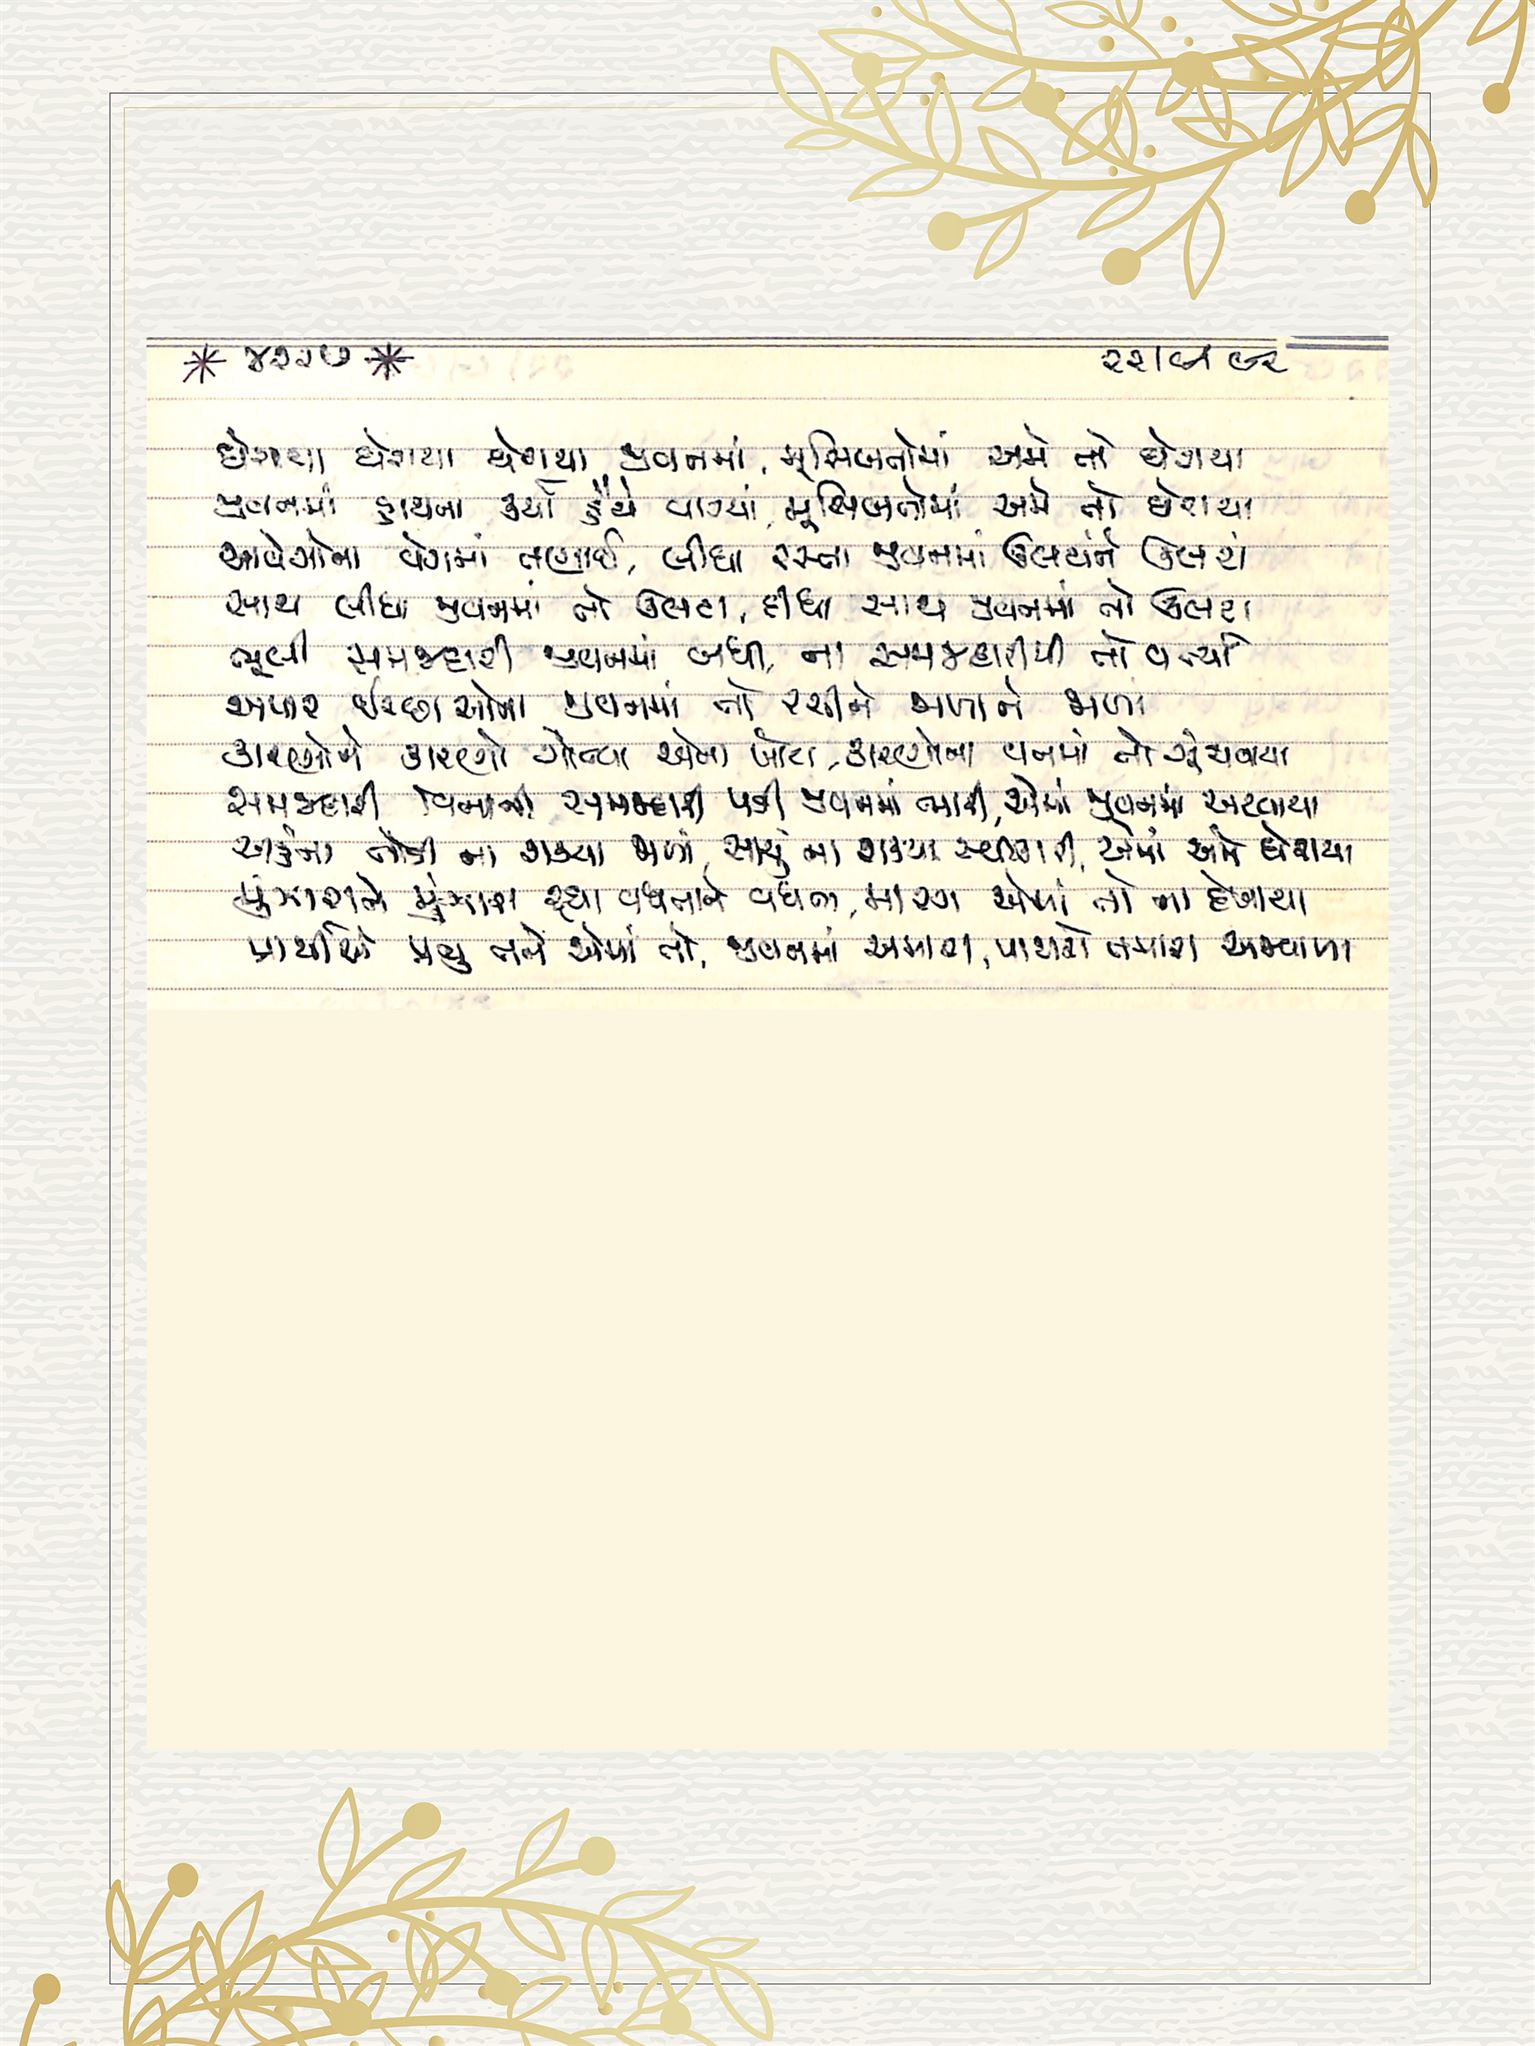 * ૪૨૨૭ *
ઘેરાયા ઘેરાયા ઘેરાયા જીવનમાં, મુસિબતોમાં અમે તો ઘેરાયા
જીવનમાં હાથના કર્યા હૈયે વાગ્યાં, મુસિબતોમાં અમે તો ઘેરાયા
આવેગોના વેગમાં તણાઈ, લીધા રસ્તા જીવનમાં ઉલટાંને ઉલટાં
સાથ લીધા જીવનમાં તો ઉલટા, દીધા સાથ જીવનમાં તો ઉલટા
ભૂલી સમજદારી જીવનમાં બધી, ના સમજદારીથી તો વર્ત્યા
અપાર ઈચ્છાઓના જીવનમાં તો રચીને જાળાને જાળા
કારણોને કારણો ગોત્યા એના ખોટા, કારણોના વનમાં તો ગૂંચવાયા
સમજદારી વિનાની સમજદારી પડી જીવનમાં ભારી, એમાં જીવનમાં અટવાયા
અહંના તોડી ના શક્યા જાળાં, સાચું ના શક્યા સ્વીકારી, એમાં અમે ઘેરાયા
મુંઝારાને મુંઝારા રહ્યા વધતાને વધતા, મારગ એમાં તો ના દેખાયા
પ્રાર્થીએ પ્રભુ તને એમાં તો, જીવનમાં અમારા, પાથરો તમારા અજવાળા